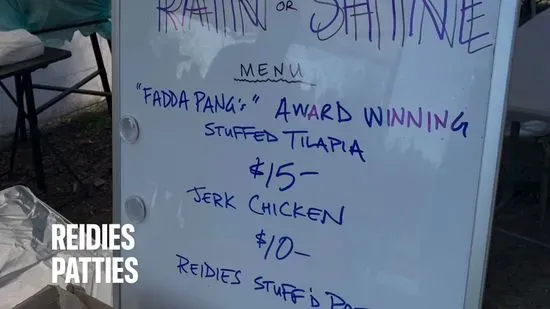 RAIN OR SHINE
MENU
"FADDA PANG's" AWARD WINNING
STUFFED TILAPIA
$15-
JERK CHICKEN
$10-
REIDIES STUFF'D
REIDIES
PATTIES